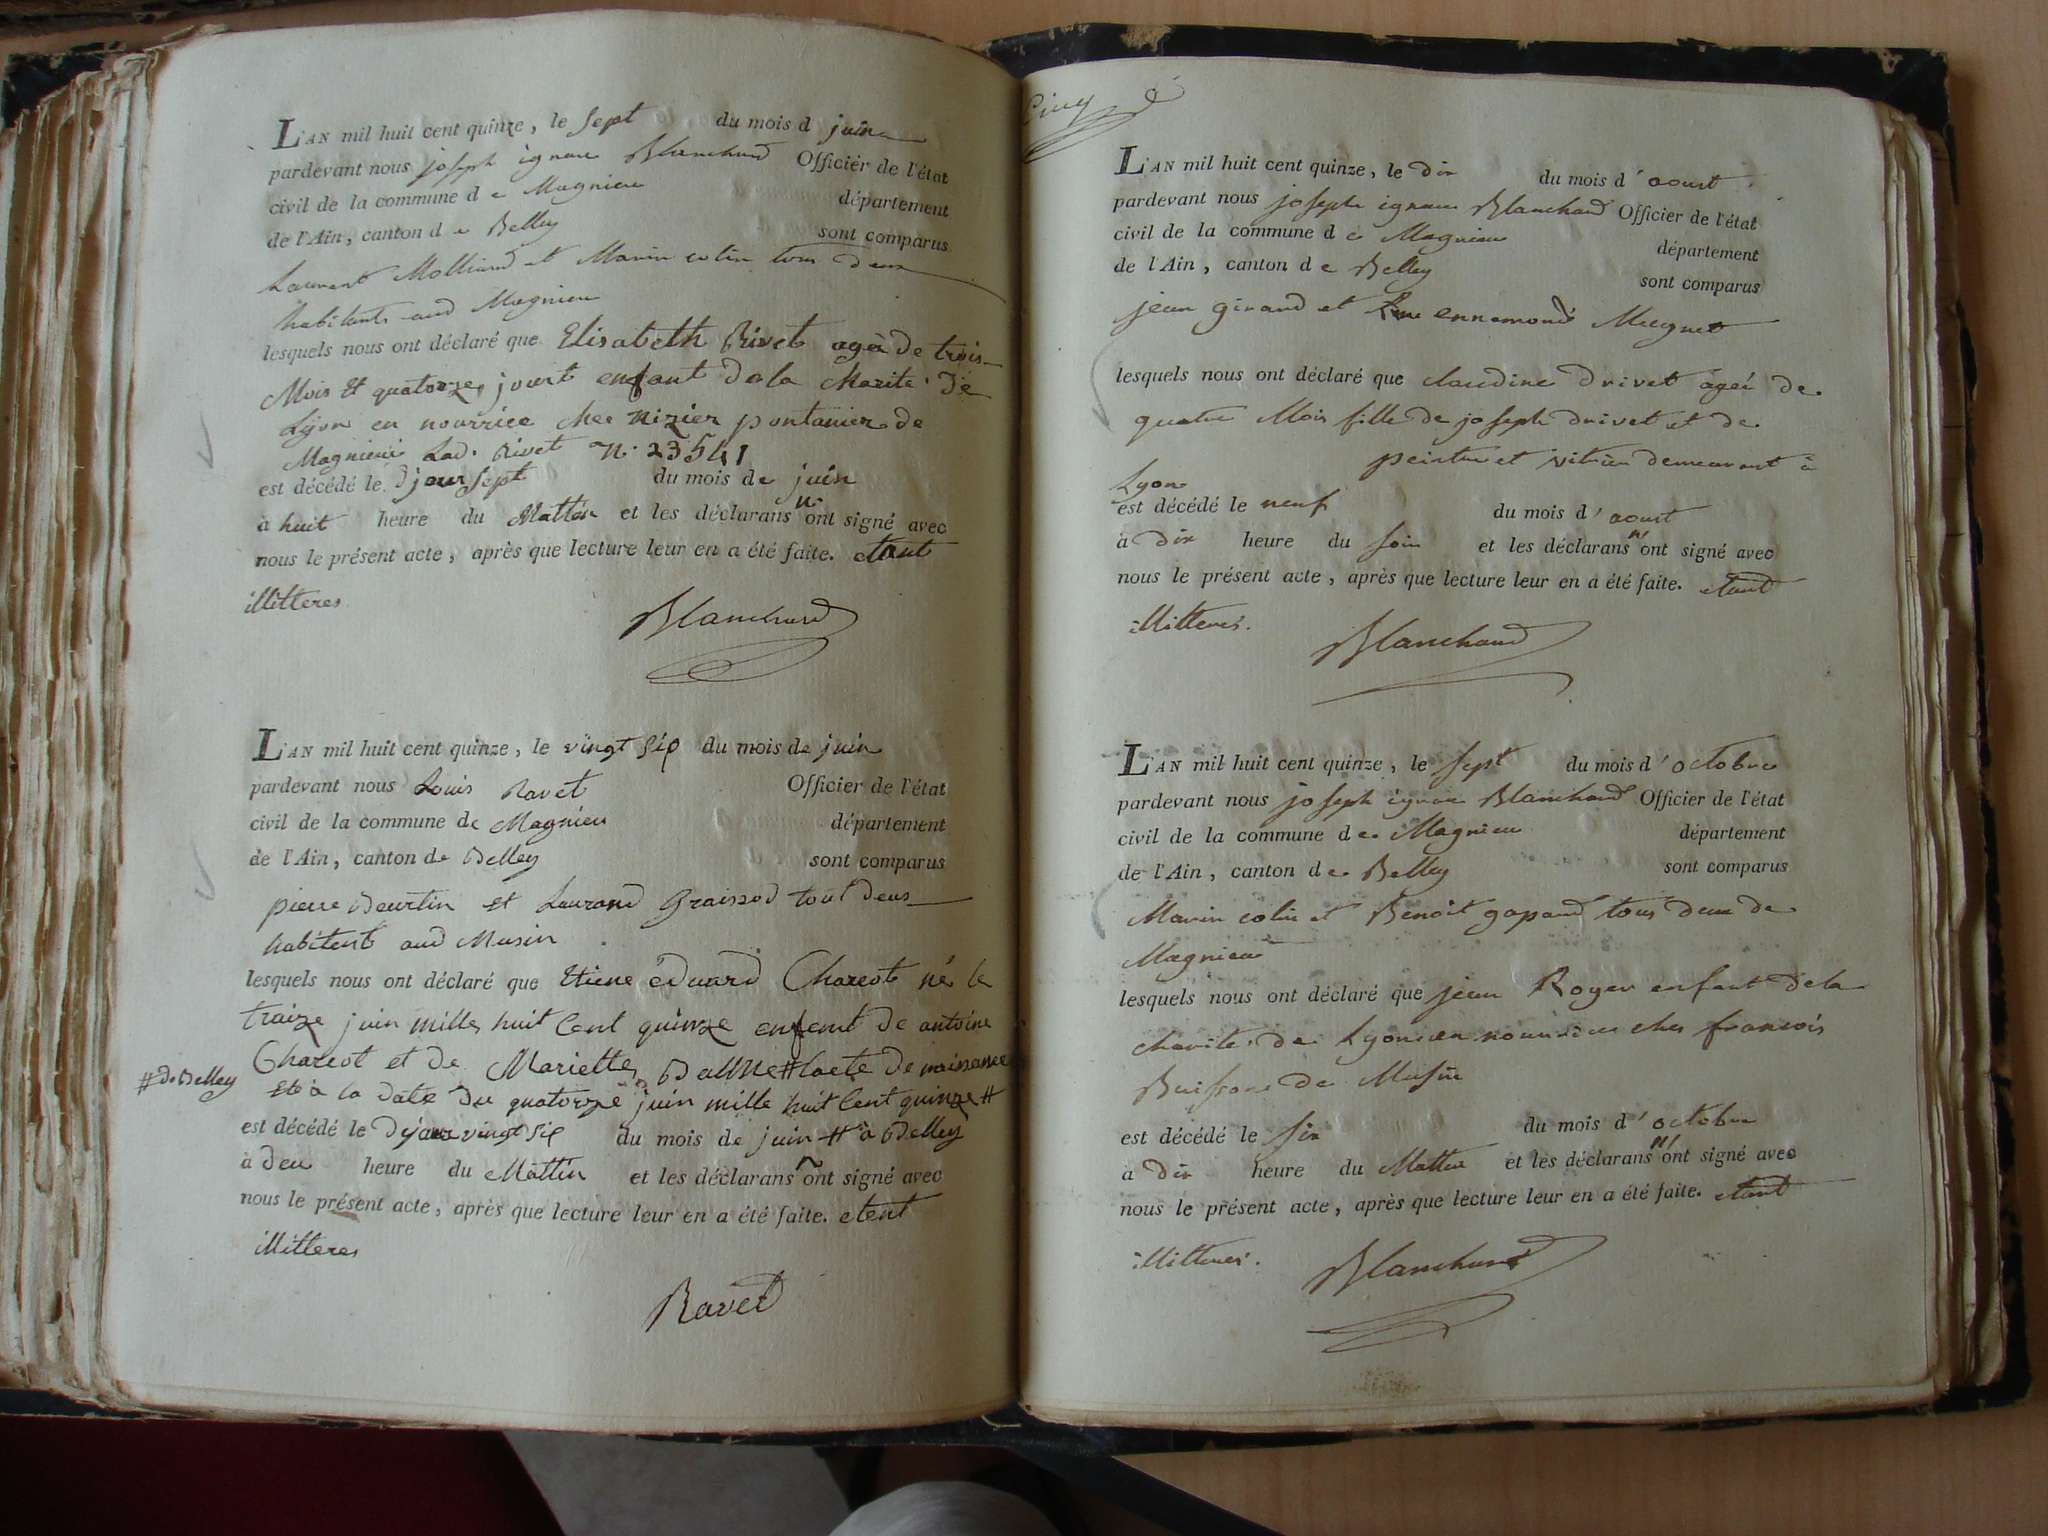 L'AN mil huit cent quinze, le sept du mois d juin
pardevant nous joseph ignace Blanchard Officier de l'état
civil de la commune d e Magnieu département
de l'Ain, canton d e Belley sont comparus
Laurent Molliard et Marin colin tous deux
habitants aud Magnieu
lesquels nous ont déclaré que Elisabeth Rivet agée de trois
Mois et quatorze jourt enfant de la Charite de
Lyon en nourrice chez nizier pontanier de
Magnieu Lad. Rivet n. 23541
est décédé le d jour sept du mois de juin
à huit heure du Mattin et les déclarans n' ont signé avec
nous le présent acte, après que lecture leur en a été faite. etant
illitteres
Blanchard
L'AN mil huit cent quinze, le vingt six du mois de juin
pardevant nous Louis Ravet Officier de l'état
civil de la commune de Magnieu département
de l'Ain, canton de Belley sont comparus
pierre Beurtin et Laurand Graissod tout deus
habitent aud Musin
lesquels nous ont déclaré que Etiene éduard Chareot né le
traize juin mille huit Cent quinze enfent de antoine
Chareot et de Mariette Balme # lacte de naissance
#de Belley
et à la date du quatorze juin mille huit Cent quinze #
est décédé le dejour vingt six du mois de juin # à Belley
à deu heure du Mattin et les déclarans n ont signé avec
nous le présent acte, après que lecture leur en a été faite. etent
illitteres
Ravet
Cinq
L'AN mil huit cent quinze, le dix du mois d'aoust
pardevant nous joseph ignace Blanchard Officier de l'état
civil de la commune d e Magnieu département
de l'Ain, canton d e Belley sont comparus
jean girand et ennemond Mugnet
lesquels nous ont déclaré que claudine drivet ágeé de
quatre Mois fille de joseph drivet et de
peintre et vitrier demeurant à
Lyon
est décédé le neuf du mois d'aoust
à dix heure du soir et les déclarans n' ont signé avec
nous le présent acte, après que lecture leur en a été faite. etant
illitterés.
Blanchard
L'AN mil huit cent quinze, le sept du mois d'octobre
pardevant nous joseph ignace Blanchard Officier de l'état
civil de la commune d e Magnieu département
de l'Ain, canton d e Belley sont comparus
Marin colin et Benoit gopand tous deux de
Magnieu
lesquels nous ont déclaré que jean Royer enfant de la
charite de Lyon en nourrice ches francois
Buisson de Musin
est décédé le six du mois d'octobre
à dix heure du Mattin et les déclarans n' ont signé avec
nous le présent acte, après que lecture leur en a été faite. etant
illitterés.
Blanchard